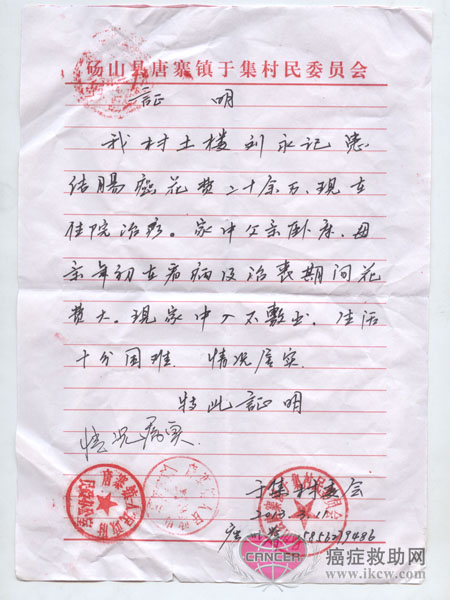 砀山县唐寨镇于集村民委员会
証 明
我村土楼刘永记患
结肠癌花费二十余万,现在
住院治疗。家中父亲卧床,母
亲年初在看病及治丧期间花
费大。现家中入不敷出,生活
十分困难 情况属实
特此証明
情况属实.
于集村委会
癌症救助网
CANCER
www.ikcw.com